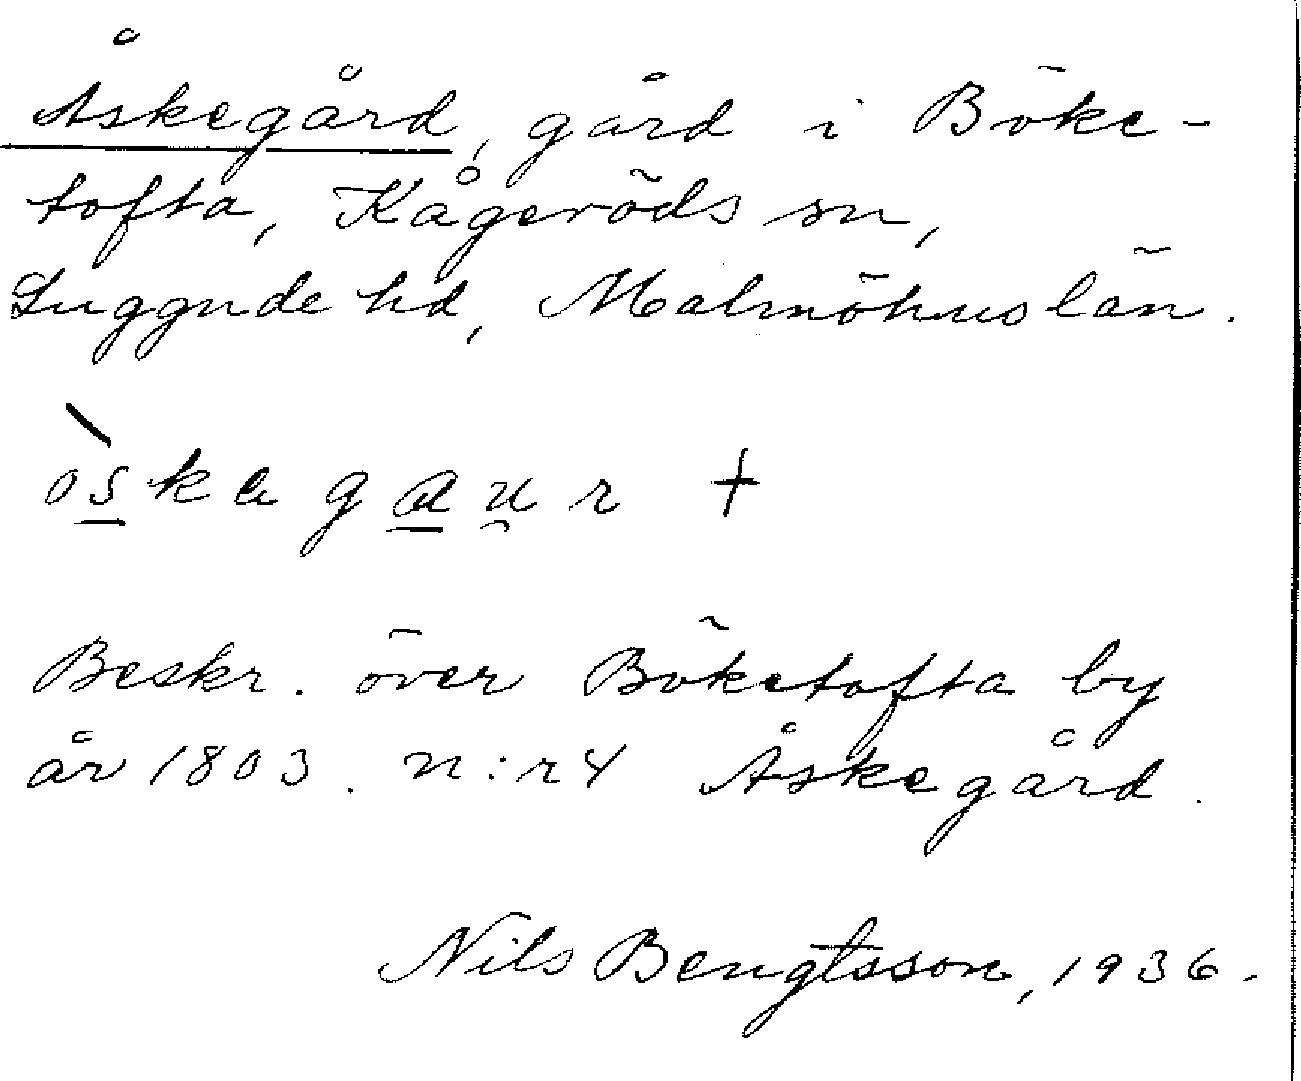 Åskegård, gård i Böke-
tofta, Kågeröds sn,
Luggude hd, Malmöhus län.
òskagau̯r +
Beskr. över Böketofta by
år 1803. n:r 4 Åskegård.
Nils Bengtsson, 1936.